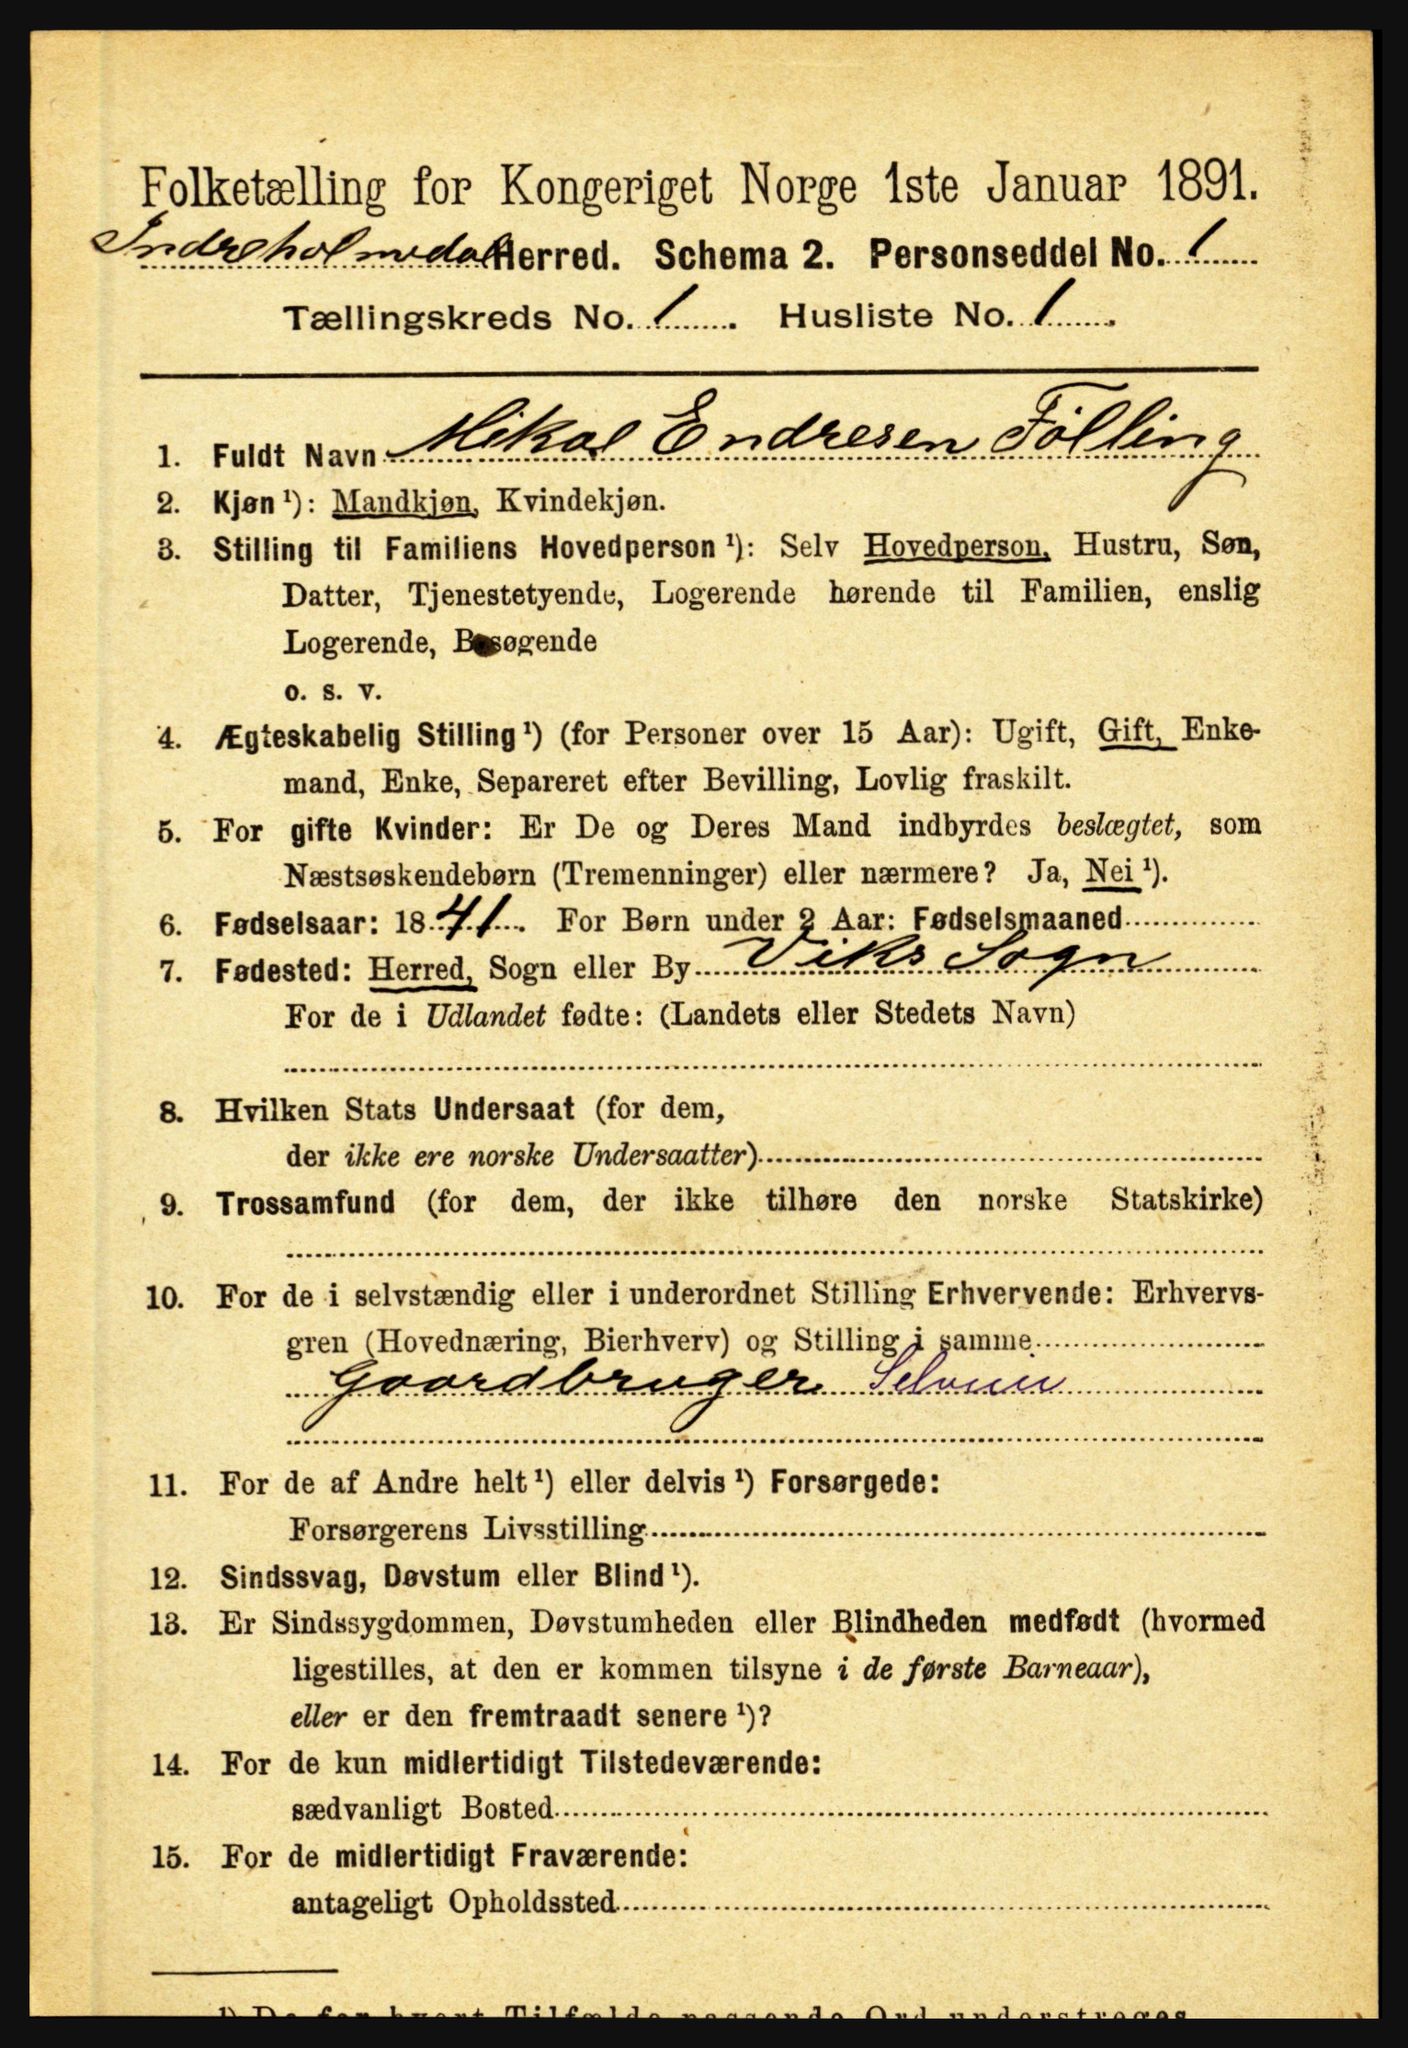 Folketælling for Kongeriget Norge 1ste Januar 1891.
Indreholmedal Herred. Schema 2. Personseddel No. 1
Tællingskreds No. 1. Husliste No. 1.
1. Fuldt Navn Mikal Endresen Fölling
2. Kjøn ¹): Mandkjøn, Kvindekjøn.
3. Stilling til Familiens Hovedperson ¹): Selv Hovedperson, Hustru, Søn,
Datter, Tjenestetyende, Logerende hørende til Familien, enslig
Logerende, Besøgende
o. s. v.
4. Ægteskabelig Stilling ¹) (for Personer over 15 Aar): Ugift, Gift, Enke-
mand, Enke, Separeret efter Bevilling, Lovlig fraskilt.
5. For gifte Kvinder: Er De og Deres Mand indbyrdes beslægtet, som
Næstsøskendebørn (Tremenninger) eller nærmere? Ja, Nei ¹).
6. Fødselsaar: 1841. For Børn under 2 Aar: Fødselsmaaned
7. Fødested: Herred, Sogn eller By Viks Sogn
For de i Udlandet fødte: (Landets eller Stedets Navn)
8. Hvilken Stats Undersaat (for dem,
der ikke ere norske Undersaatter)
9. Trossamfund (for dem, der ikke tilhøre den norske Statskirke)
10. For de i selvstændig eller i underordnet Stilling Erhvervende: Erhvervs-
gren (Hovednæring, Bierhverv) og Stilling i samme
Gaardbruger Selveier
11. For de af Andre helt ¹) eller delvis ¹) Forsørgede:
Forsørgerens Livsstilling
12. Sindssvag, Døvstum eller Blind ¹).
13. Er Sindssygdommen, Døvstumheden eller Blindheden medfødt (hvormed
ligestilles, at den er kommen tilsyne i de første Barneaar),
eller er den fremtraadt senere ¹)?
14. For de kun midlertidigt Tilstedeværende:
sædvanligt Bosted
15. For de midlertidigt Fraværende:
antageligt Opholdssted
¹) De for hvert Tilfælde passende Ord understreges